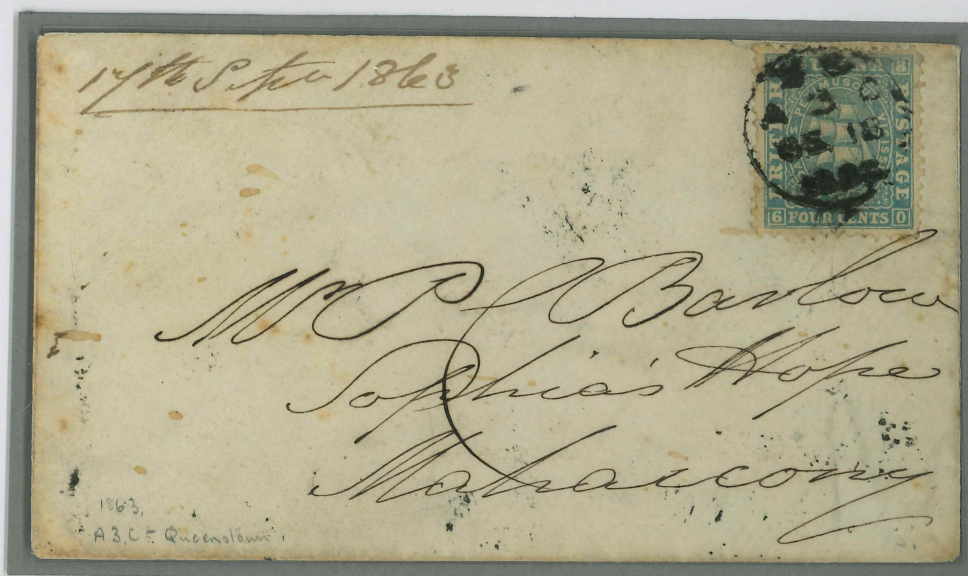 17th Septr 1863
BRITISH GUIANA POSTAGE
8
6 FOUR CENTS 0
18
Mr P Barlow
Sophia's Hope
Mahaicony
1863.
A3, C - Queenstown.